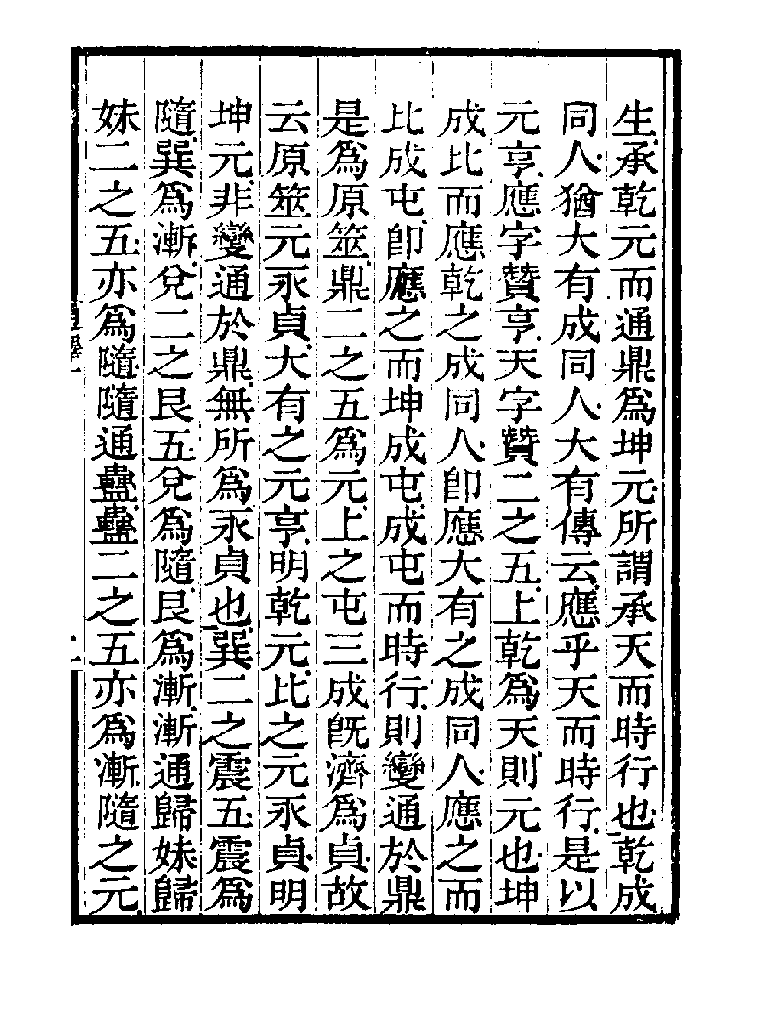 生承乾元而通鼎爲坤元所謂承天而時行也乾成
同人猶大有成同人大有傳云應乎天而時行是以
元亨應字贊亨天字贊二之五上乾爲天則元也坤
成比而應乾之成同人卽應大有之成同人應之而
比成屯卽應之而坤成屯成屯而時行則變通於鼎
是爲原筮鼎二之五爲元上之屯三成旣濟爲貞故
云原筮元永貞大有之元亨明乾元比之元永貞明
坤元非變通於鼎無所爲永貞也巽二之震五震爲
隨巽爲漸兌二之艮五兌爲隨艮爲漸漸通歸妹歸
妹二之五亦爲隨隨通蠱蠱二之五亦爲漸隨之元
通釋一
二